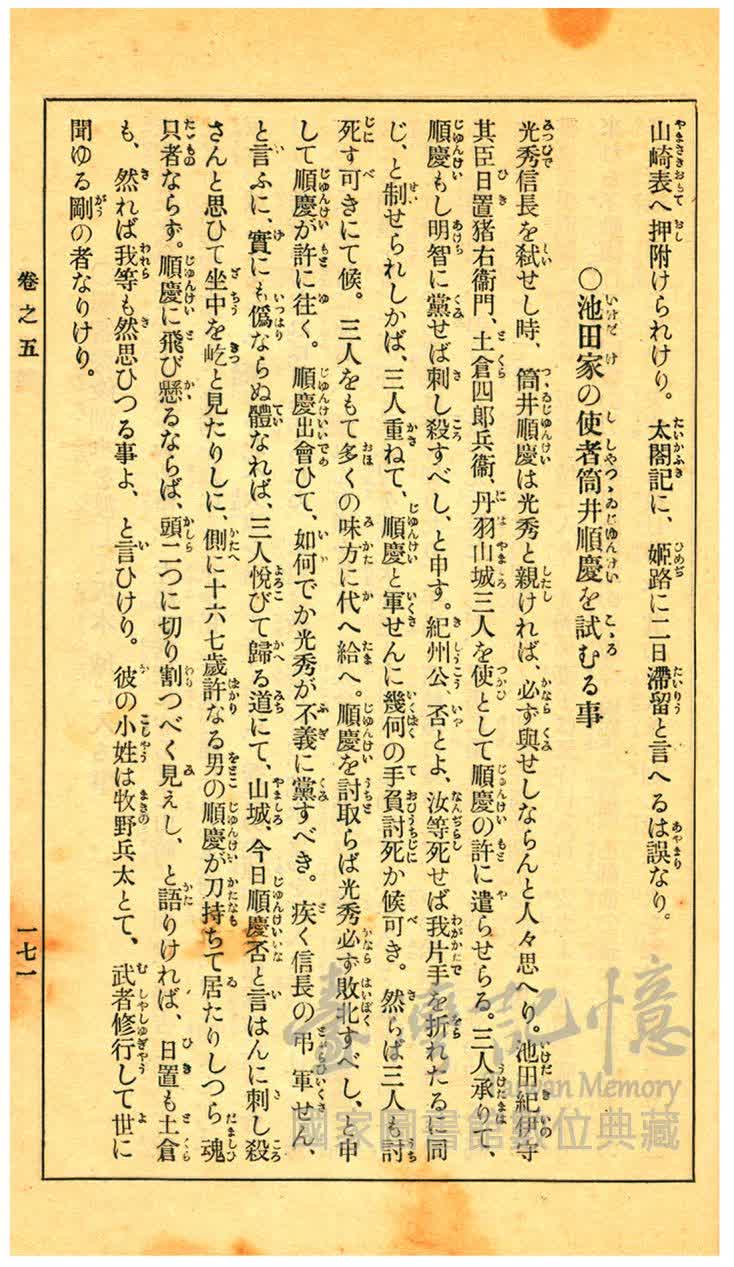 山崎表へ押附けられけり。太閤記に、姬路に二日滯留と言へるは誤なり。
〇池田家の使者筒井順慶を試むる事
光秀信長を弑せし時、筒井順慶は光秀と親ければ、必ず與せしならんと人々思へり。池田紀伊守
其臣日置猪右衞門、土倉四郎兵衞、丹羽山城三人を使として順慶の許に遣らせらる。三人承りて、
順慶もし明智に黨せば刺し殺すべし、と申す。紀州公、否とよ、汝等死せば我片手を折れたるに同
じ、と制せられしかば、三人重ねて、順慶と軍せんに幾何の手負討死か候可き。然らば三人も討
死す可きにて候。三人をもて多くの味方に代へ給へ。順慶を討取らば光秀必ず敗北すべし、と申
して順慶が許に往く。順慶出會ひて、如何でか光秀が不義に黨すべき。疾く信長の弔軍せん、
と言ふに、實にも僞ならぬ體なれば、三人悅びて歸る道にて、山城、今日順慶否と言はんに刺し殺
さんと思ひて坐中を屹と見たりしに、側に十六七歲許なる男の順慶が刀持ちて居たりしつら魂
只者ならず。順慶に飛び懸るならば、頭二つに切り割つべく見えし、と語りければ、日置も土倉
も、然れば我等も然思ひつる事よ、と言ひけり。彼の小姓は牧野兵太とて、武者修行して世に
聞ゆる剛の者なりけり。
卷之五
一七一
臺灣記憶
Taiwan Memory
國家圖書館數位典藏